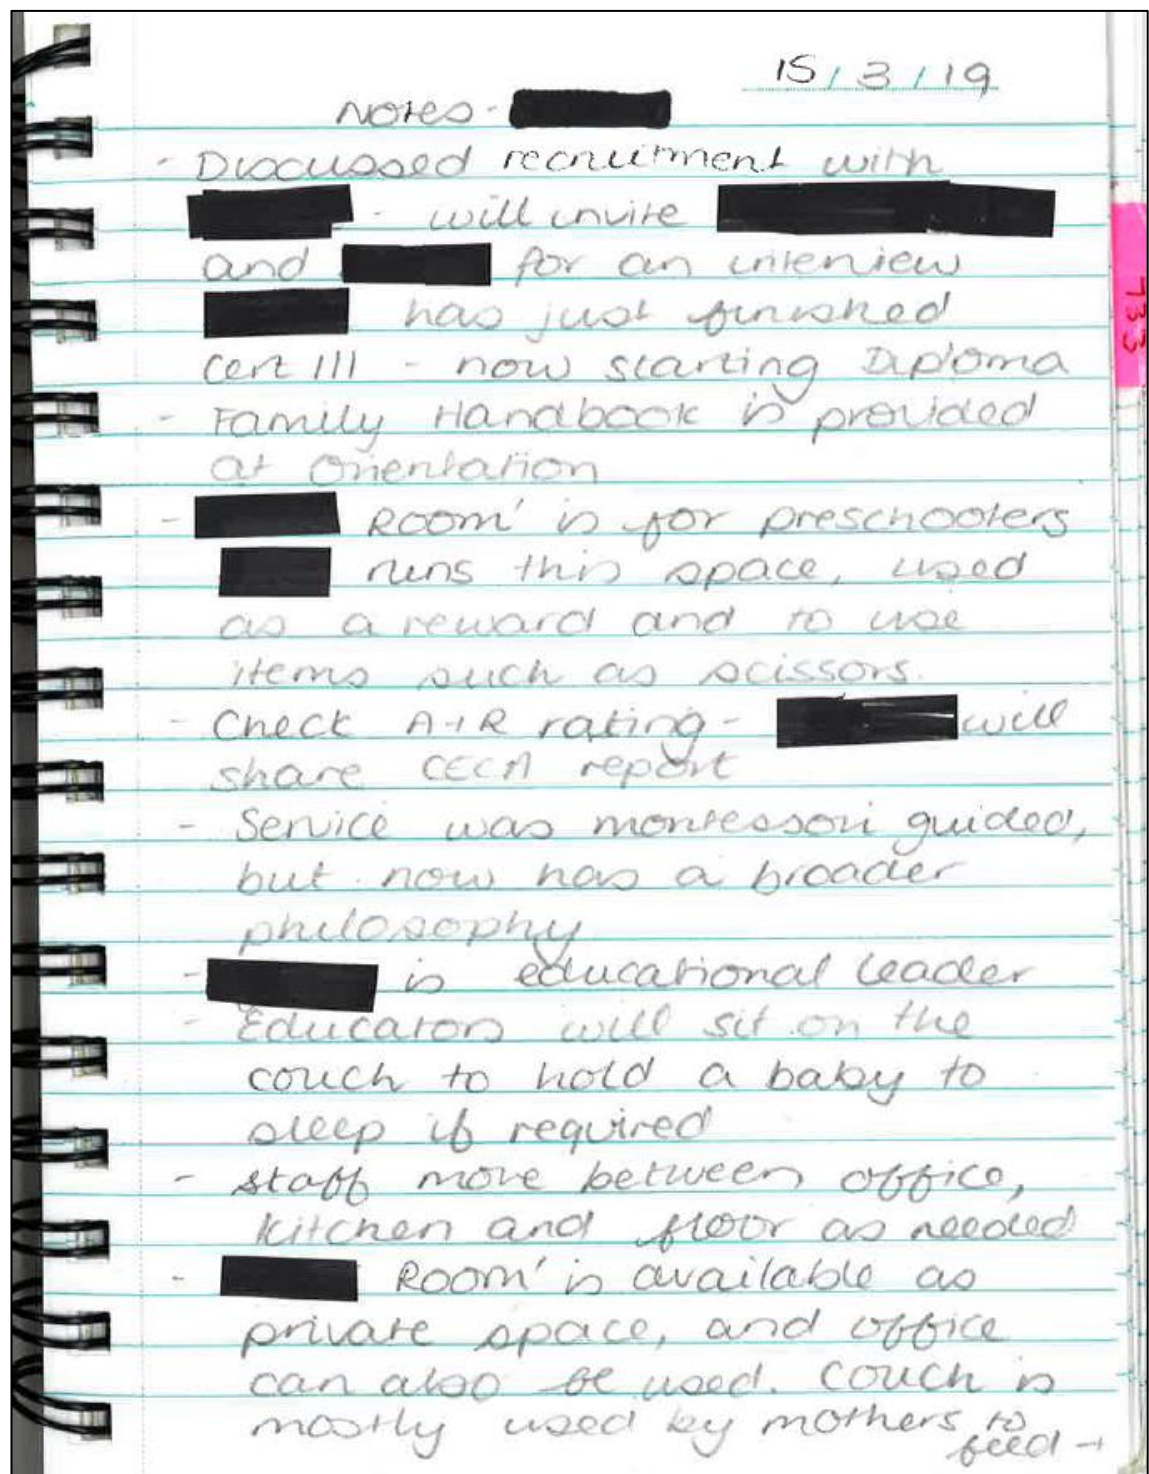 15/3/19
Notes -
- Discussed recruitment with
- will invite
and for an interview
has just finished
Cert III - now starting Diploma
- Family Handbook is provided
at Orientation
- Room' is for preschoolers
runs this space, used
as a reward and to use
items such as scissors.
- Check A+R rating - will
share CECA report
- Service was montessori guided,
but now has a broader
philosophy
- is educational leader
- Educators will sit on the
couch to hold a baby to
sleep if required
- Staff move between office,
kitchen and floor as needed
- Room' is available as
private space, and office
can also be used. Couch is
mostly used by mothers to
feed →
733